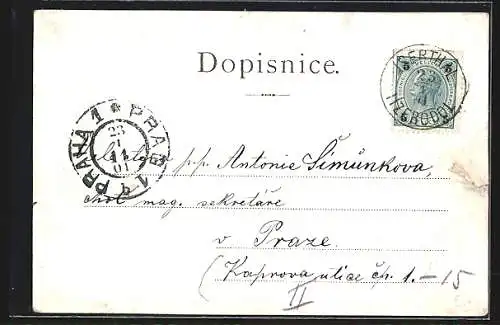 Dopisnice.
PRAHA 1 * PRAG 1
23
01
p.p. Antonie Šimůnkova,
chot mag. sekretáře
v Praze.
(Kaprova ulice čp. 1. – 15
II